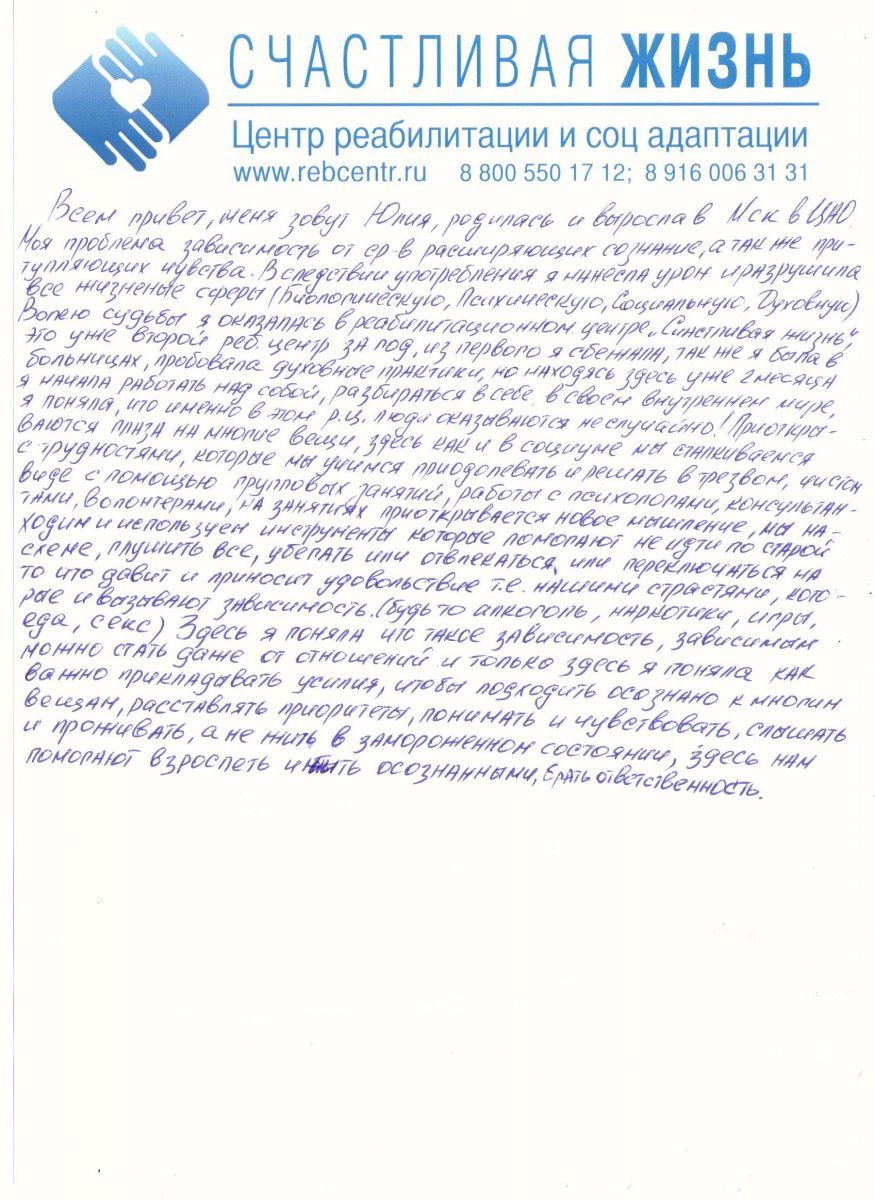 СЧАСТЛИВАЯ ЖИЗНЬ
Центр реабилитации и соц адаптации
www.rebcentr.ru 8 800 550 17 12; 8 916 006 31 31
Всем привет, меня зовут Юлия, родилась и выросла в Мск в ЦАО.
Моя проблема зависимость от ср-в расширяющих сознание, а так же при-
тупляющих чувства. В следствии употребления я нанесла урон и разрушила
все жизненые сферы (Биологическую, Психическую, Социальную, Духовную)
Волею судьбы я оказалась в реабилитационном центре „Счастливая жизнь",
это уже второй реб. центр за год, из первого я сбежала, так же я была в
больницах, пробовала духовные практики, но находясь здесь уже 2 месяца
я начала работать над собой, разбираться в себе, в своем внутреннем мире,
я поняла, что именно в этом р.ц. люди оказываются не случайно! Приоткры-
ваются глаза на многие вещи, здесь как и в социуме мы сталкиваемся
с трудностями, которые мы учимся приодолевать и решать в трезвом, чистом
виде с помощью групповых занятий, работы с психологами, консультан-
тами, волонтерами, на занятиях приоткрывается новое мышление, мы на-
ходим и используем инструменты которые помогают не идти по старой
схеме, глушить все, убегать или отвлекаться, или переключаться на
то что давит и приносит удовольствие т.е. нашими страстями, кото-
рые и вызывают зависимость. (будь то алкоголь, наркотики, игры,
еда, секс) Здесь я поняла что такое зависимость, зависимым
можно стать даже от отношений и только здесь я поняла как
важно прикладывать усилия, чтобы подходить осознано к многим
вещам, расставлять приоритеты, понимать и чувствовать, слышать
и проживать, а не жить в замороженном состоянии, здесь нам
помогают взрослеть и быть осознанными, брать ответственность.